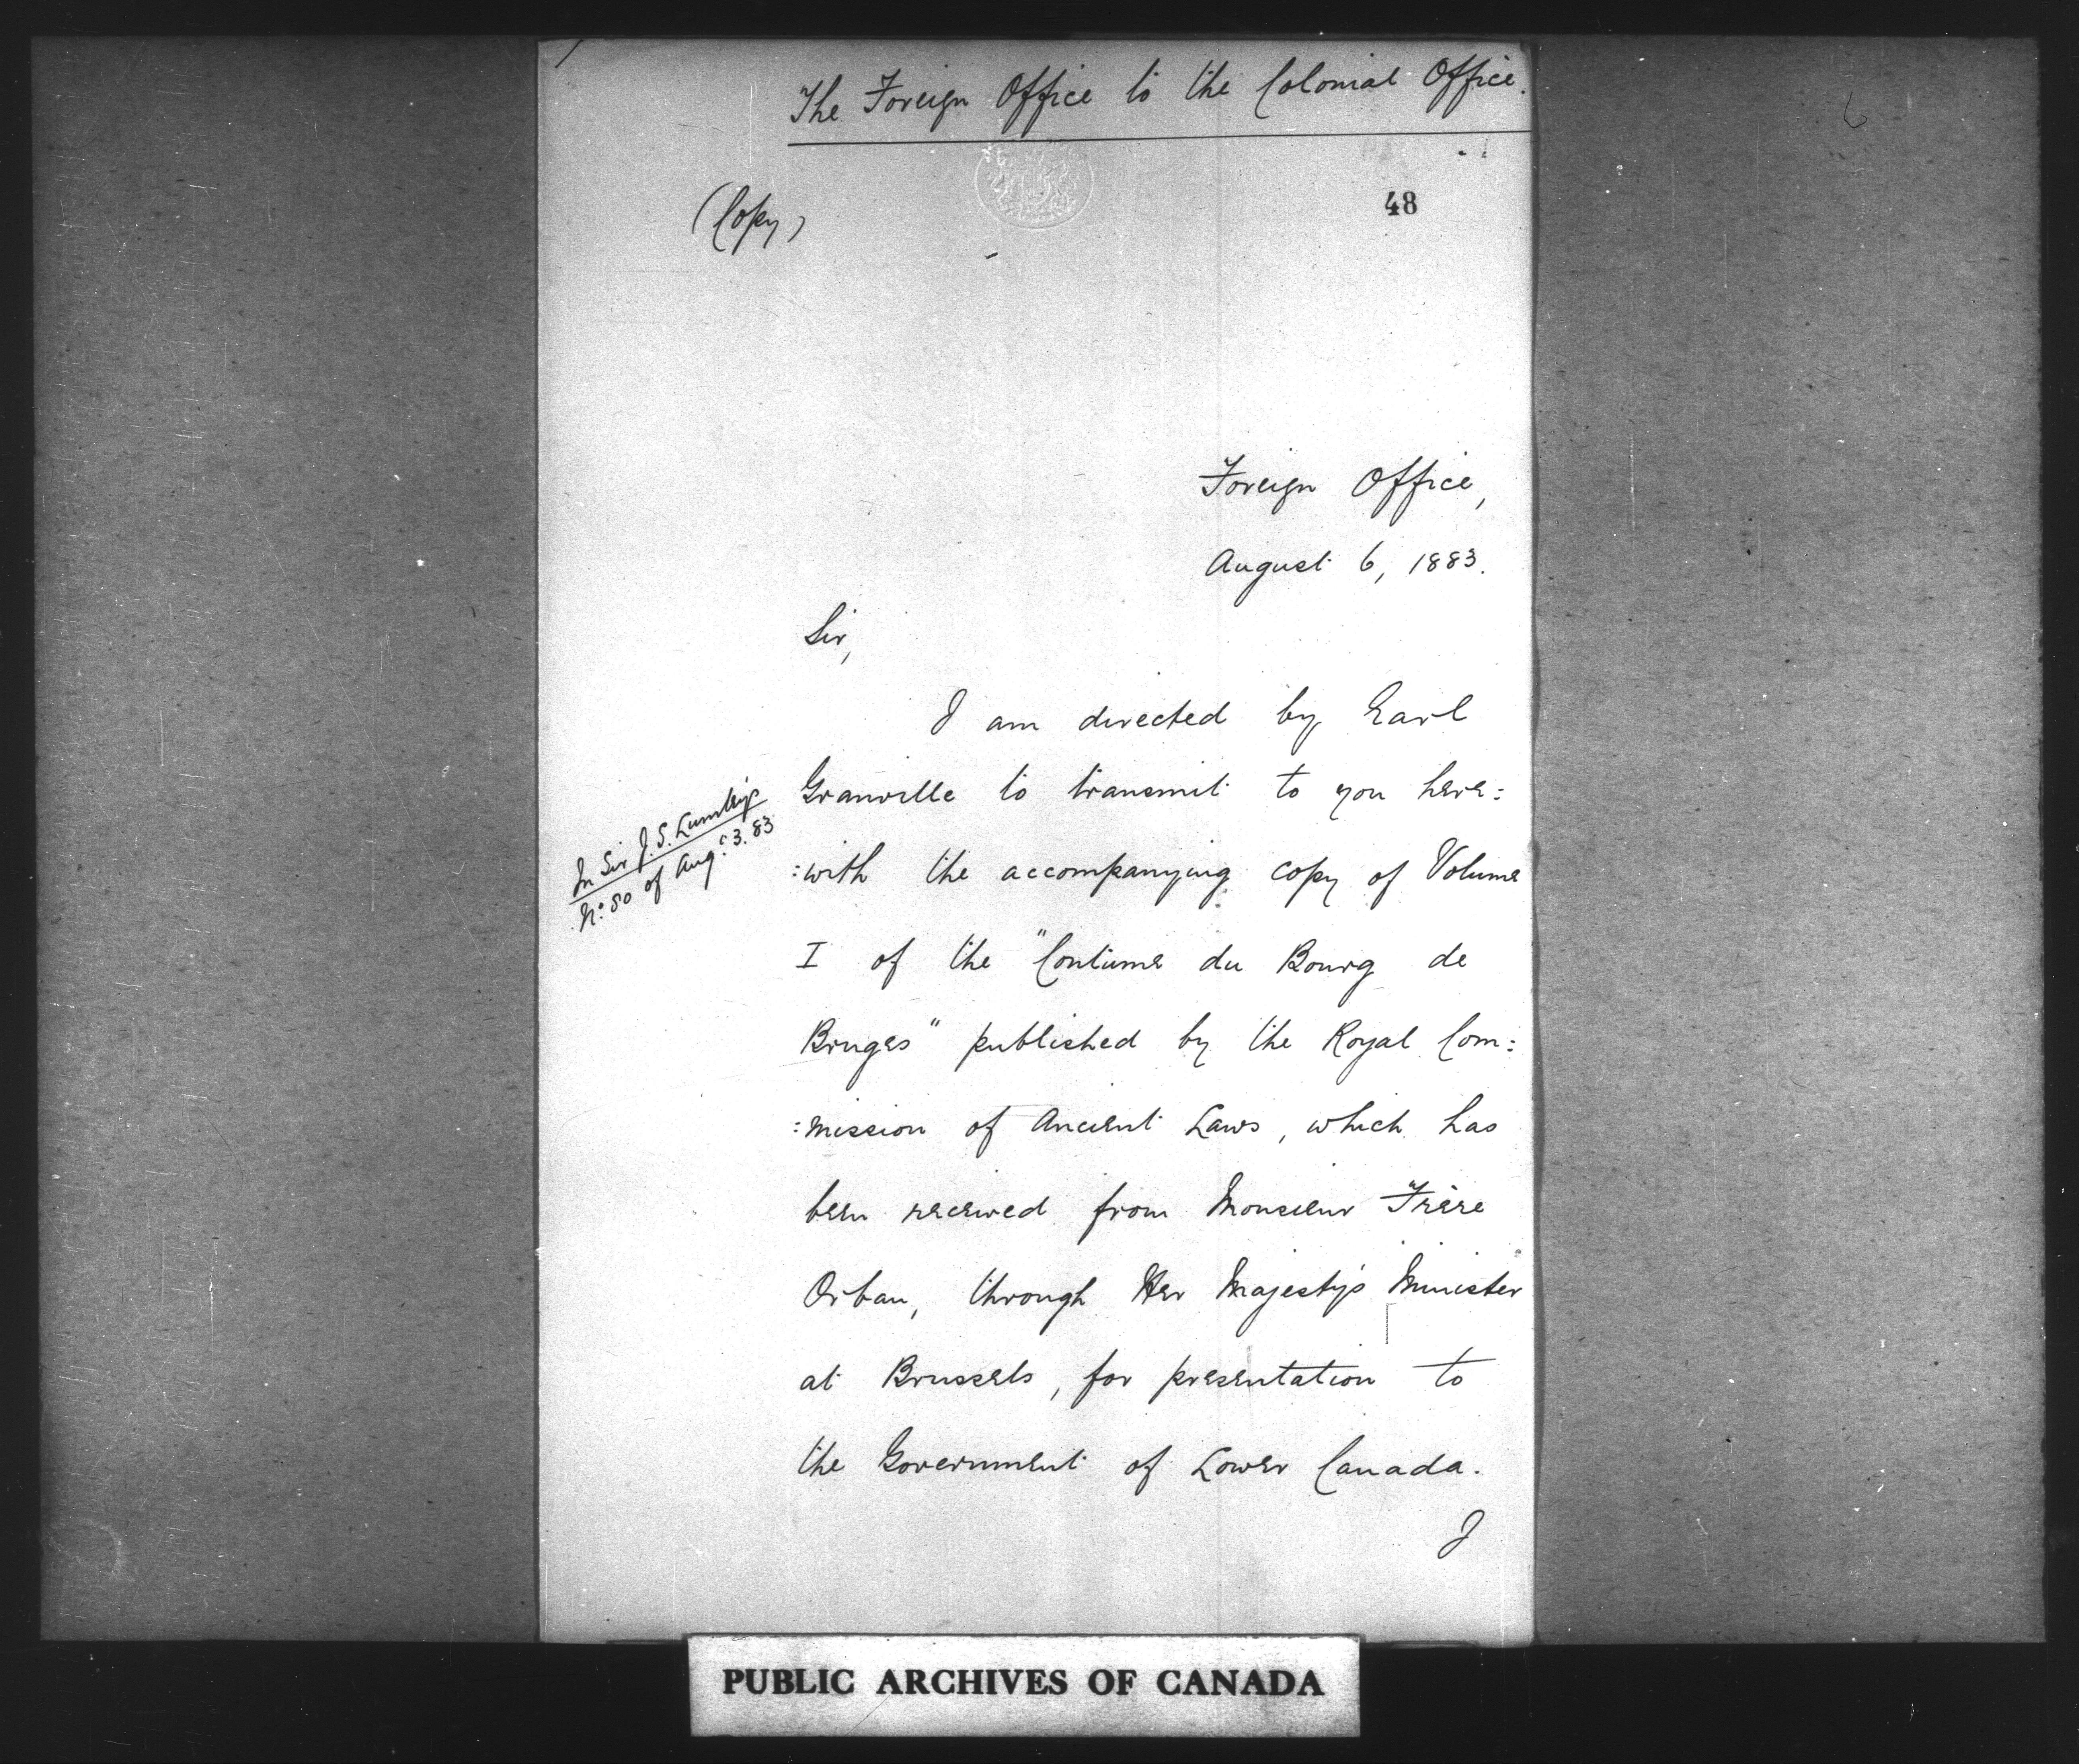 The Foreign Office to the Colonial Office.
(Copy)
48
Foreign Office,
August 6, 1883.
Sir,
I am directed by Earl
Granville to transmit to you here:
:with the accompanying copy of Volume
In Sir J. S. Lumley's
No. 80 of Aug: 3. 83
I of the "Coutume du Bourg de
Bruges" published by the Royal Com:
:mission of Ancient Laws, which has
been received from Monsieur Frère
Orban, through Her Majesty's Minister
at Brussels, for presentation to
the Government of Lower Canada.
I
PUBLIC ARCHIVES OF CANADA